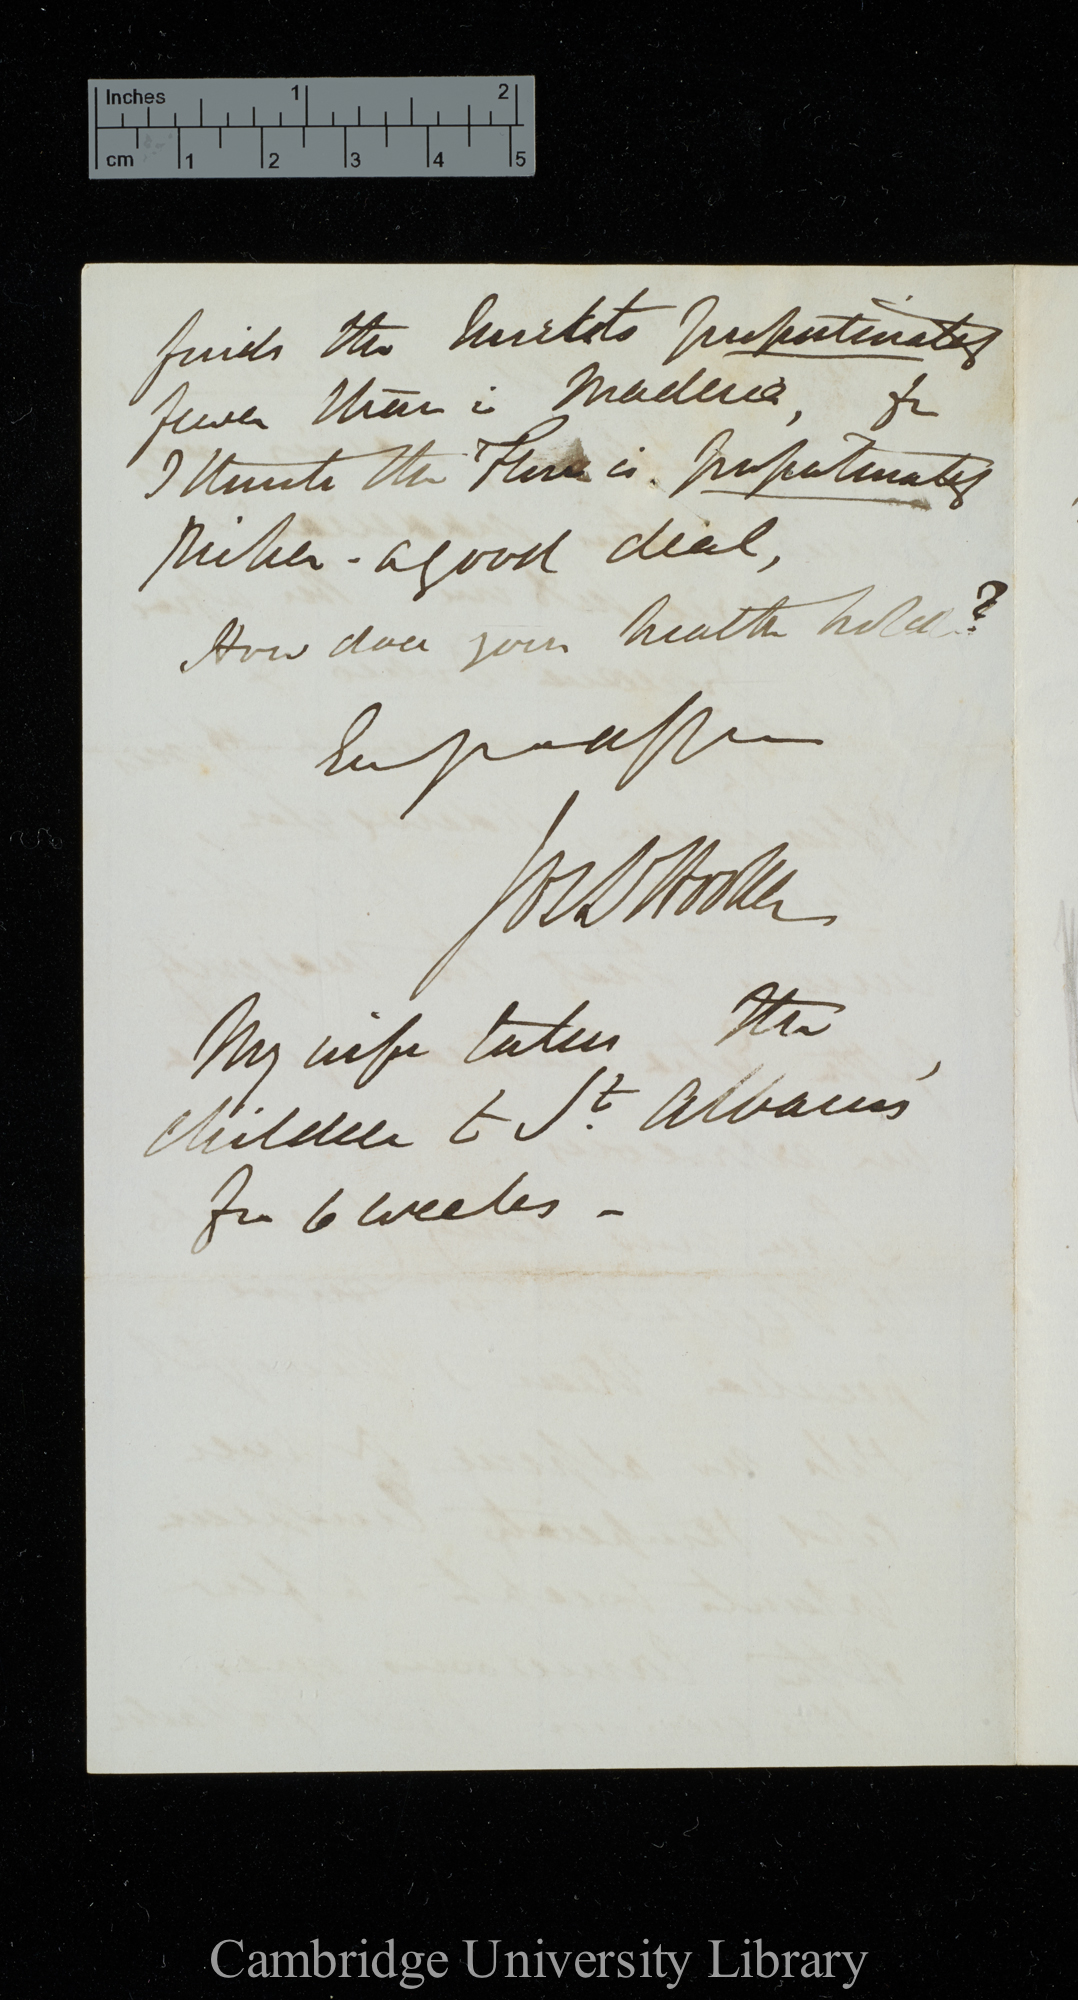 Inches 1 2
cm 1 2 3 4 5
finds the Insects proportionately
fewer than in Madeira, for
I think the Flora is proportionately
richer - a good deal,
How does your health hold?
Ever yrs affec
Jos D Hooker
My wife takes the
children to St. Albans'
for 6 weeks -
Cambridge University Library